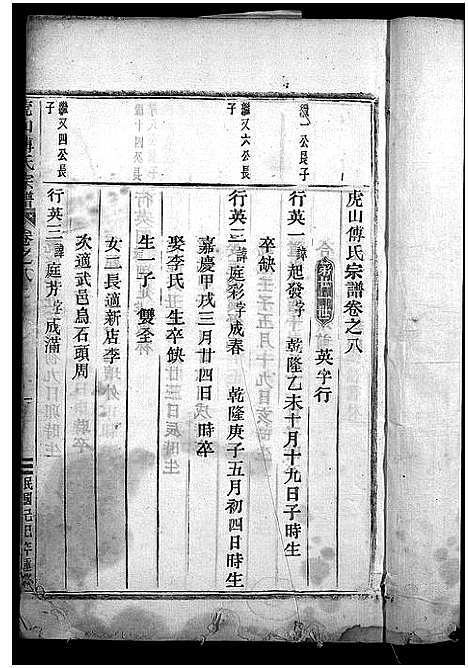 虎山傅氏宗譜卷之八
英字行
行英一諱起發字 乾隆乙未十月十九日子時生
卒缺
繼又六公長子
行英二諱庭彩字成春 乾隆庚子五月初四日時生
嘉慶甲戌三月廿四日時卒
娶李氏生卒缺
生一子雙全
女二長適新店李
次適武邑烏石頭周
繼又四公長子
行英三諱庭芳字成滿
虎山傅氏宗譜 卷之八
民國